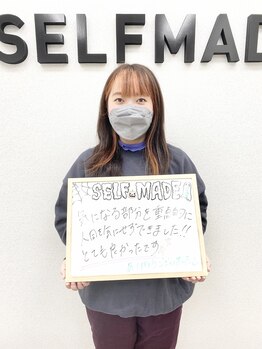 SELFMAD
SELF MADE
気になる部分を重点的に
人目を気にせずできました!!
とてもよかったです